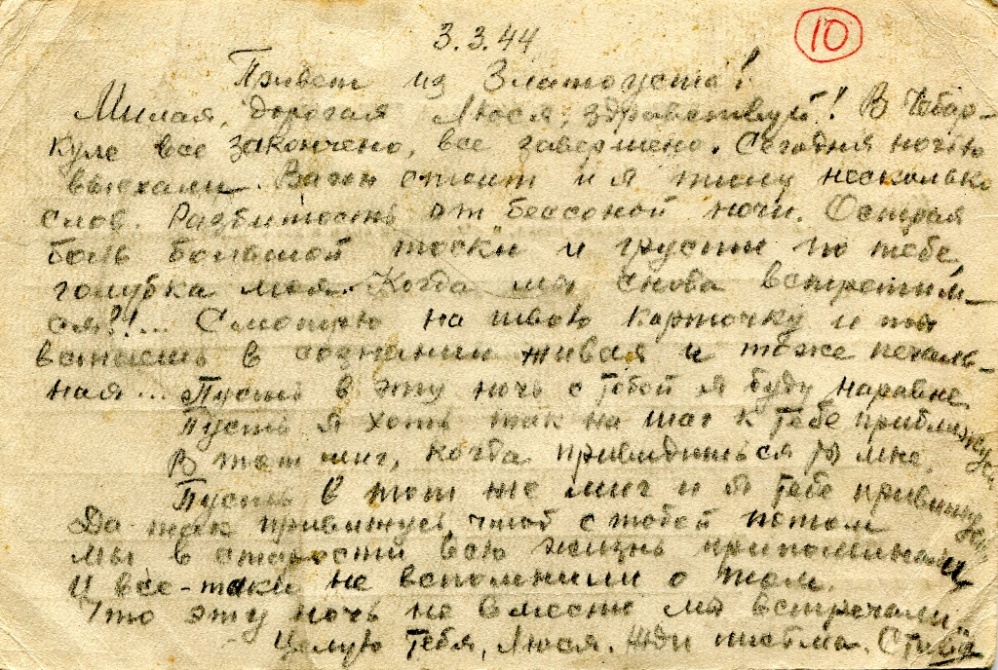 3.3.44
10
Привет из Златоуста!
Милая, дорогая Люся, здравствуй! В Чебар-
куле все закончено, все завершено. Сегодня ночью
выехали. Вагон стоит и я пишу несколько
слов. Разбитость от бессоной ночи. Острая
боль большой тоски и грусти по тебе
голубка моя. Когда мы снова встретим-
ся?!... Смотрю на твою карточку и ты
встаешь в сознании живая и тоже печаль-
ная... Пусть в эту ночь с тобой я буду наравне
Пусть я хоть так на шаг к тебе приближусь
В тот миг, когда привидишься ты мне,
Пусть в тот же миг и я тебе привижусь
Да так привижусь, чтоб с тобой потом
мы в старости всю жизнь припоминали
И все-таки не вспомнили о том,
Что эту ночь не вместе мы встречали.
Целую тебя, Люся. Жди письма.